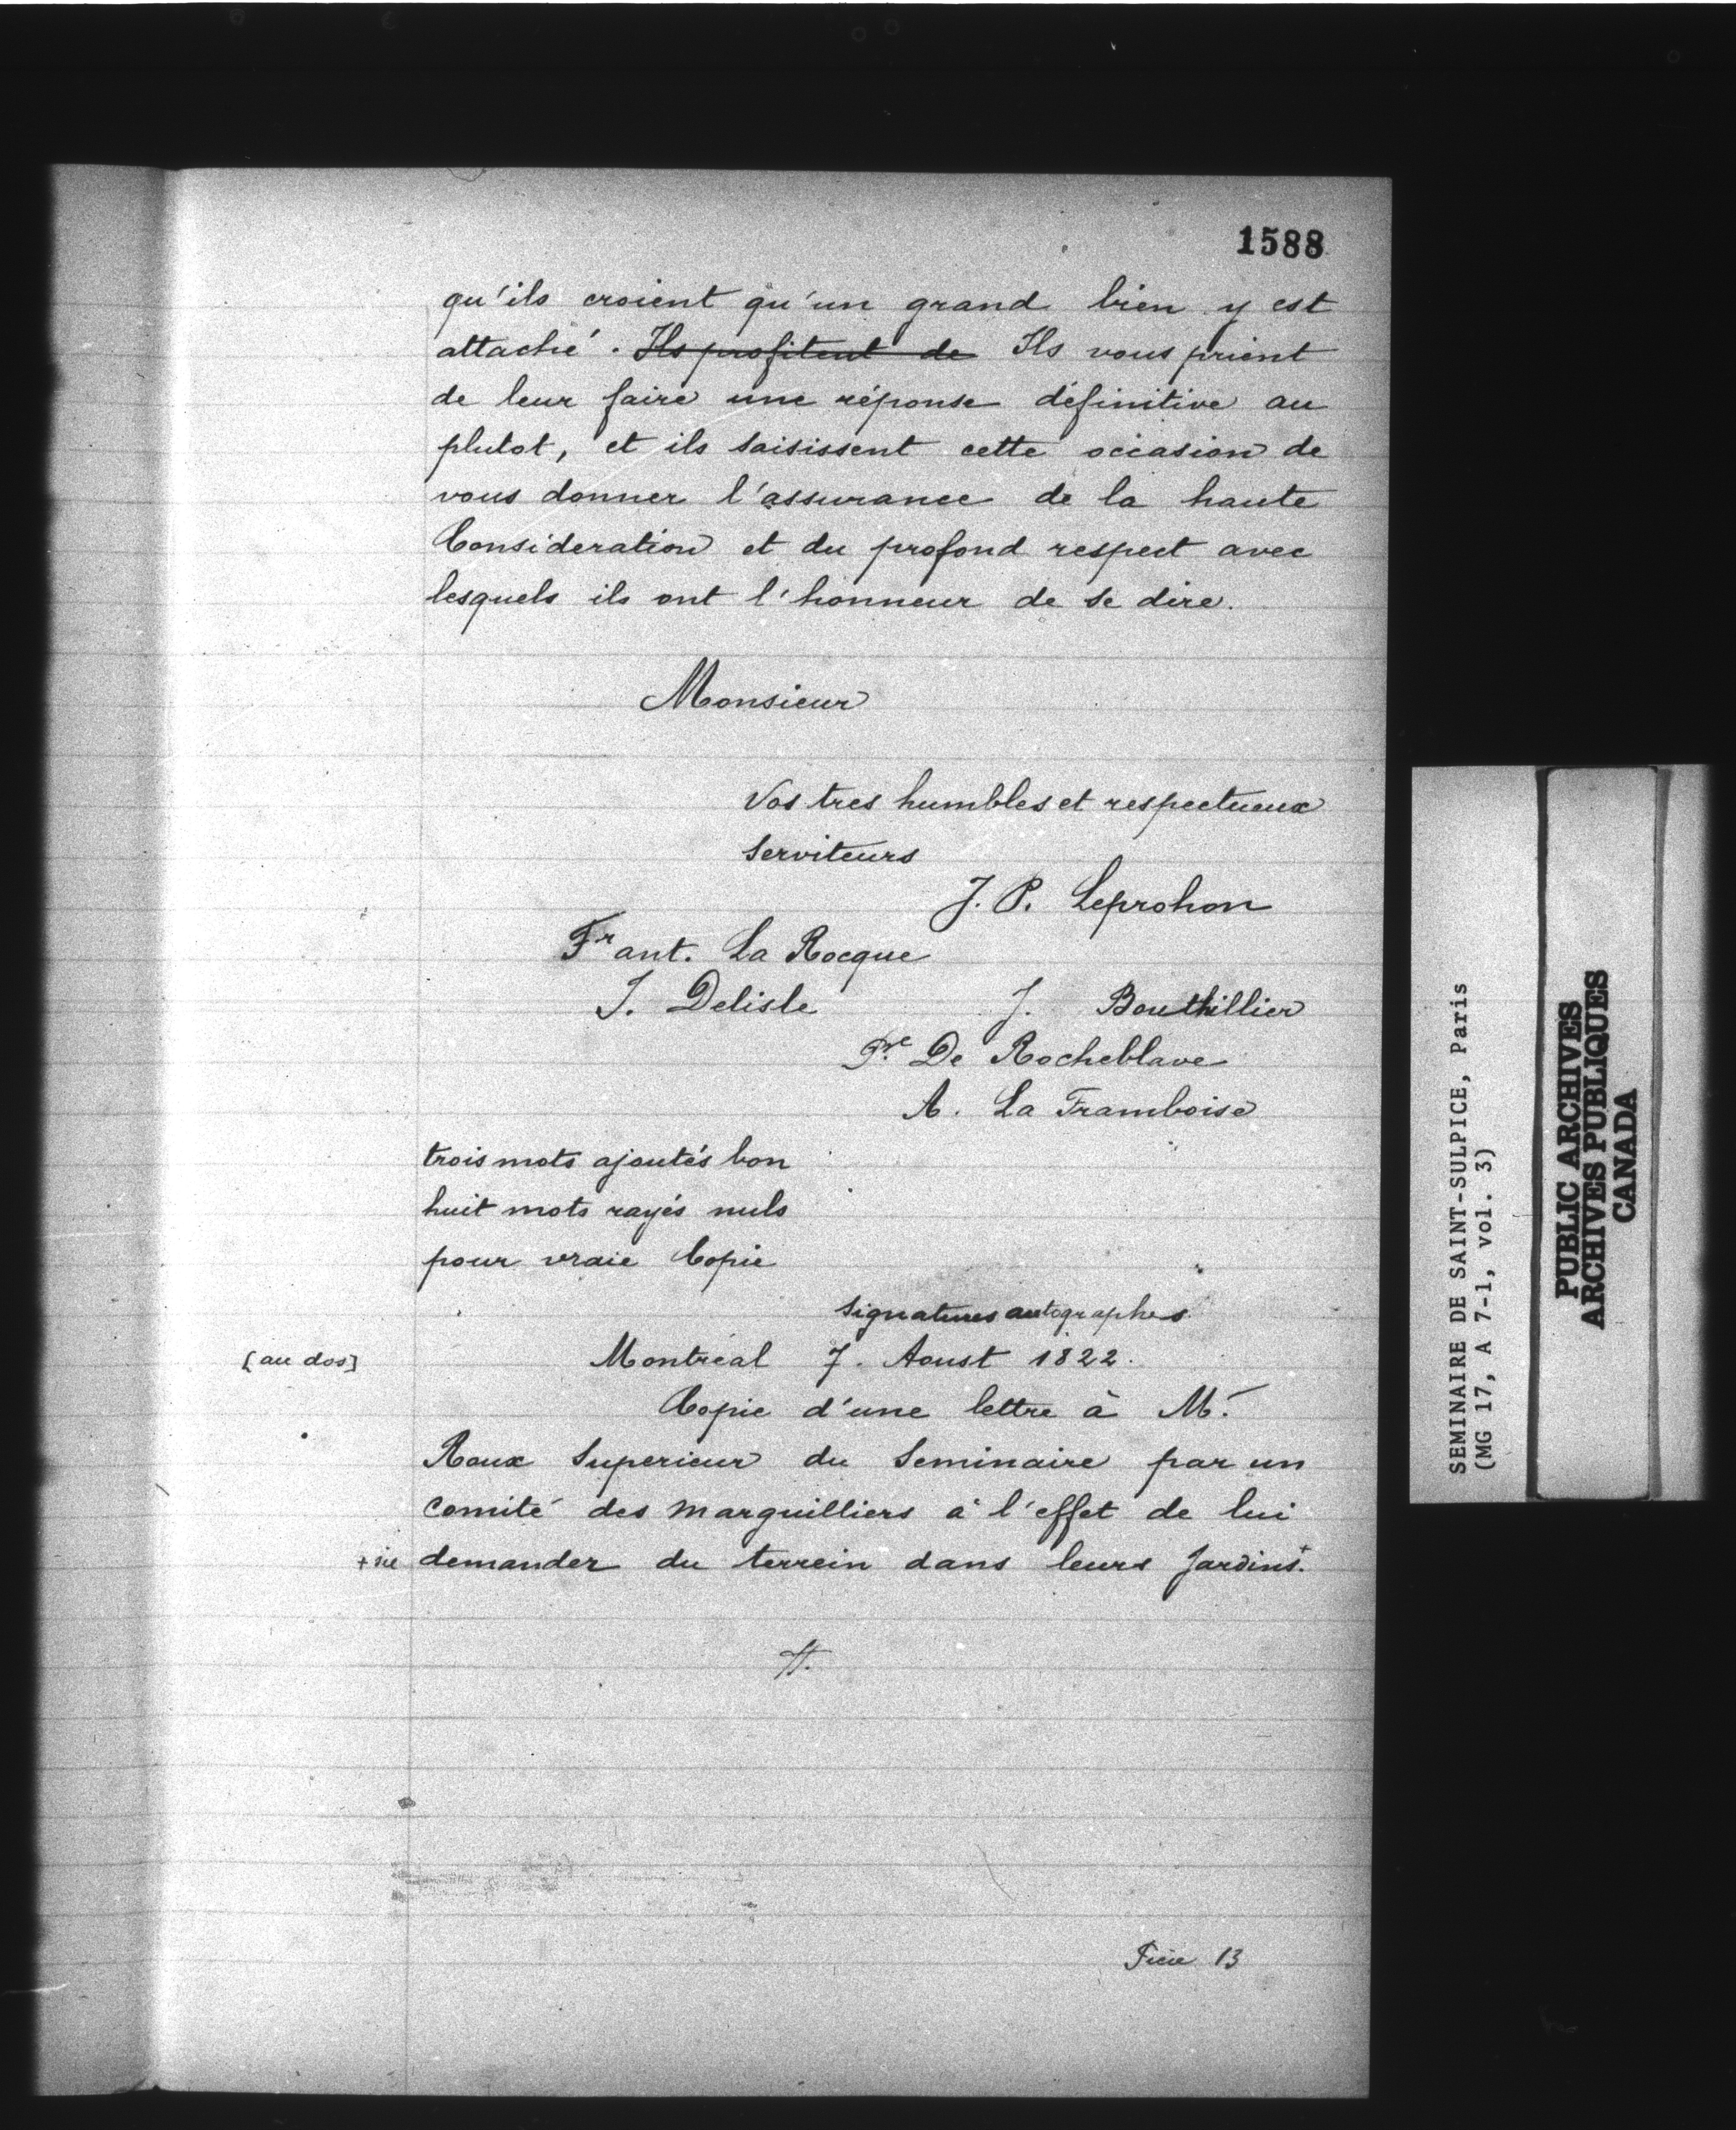 1588
qu'ils croient qu'un grand bien y est
attaché. Ils profitent de Ils vous prient
de leur faire une réponse définitive au
plutot, et ils saisissent cette occasion de
vous donner l'assurance de la haute
Consideration et du profond respect avec
lesquels ils ont l'honneur de se dire.
Monsieur
Vos tres humbles et respectueux
serviteurs
J. P. Leprohon
Fr ant. La Rocque
J. Delisle J. Bouthillier
Pre De Rocheblave
A. La Framboise
trois mots ajoutés bon
huit mots rayés nuls
pour vraie Copie
signatures autographes
[au dos] Montréal 7. Aoust 1822.
Copie d'une lettre à Mr.
Roux Superieur du Seminaire par un
comité des marguilliers à l'effet de lui
+ sic demander du terrein dans leurs Jardins+.
13
SEMINAIRE DE SAINT-SULPICE, Paris
(MG 17, A 7-1, vol. 3)
PUBLIC ARCHIVES
ARCHIVES PUBLIQUES
CANADA